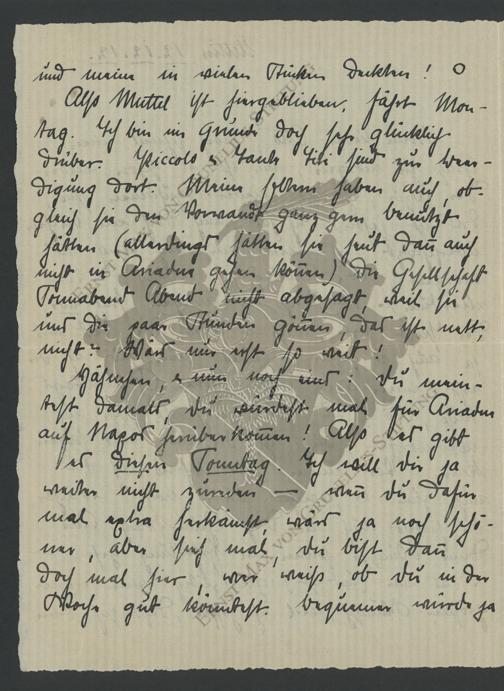 und meine in vielen Stücken deckten! O
Also Muttel ist hiergeblieben, fährt Mon-
tag. Ich bin im Grunde doch sehr glücklich
drüber. Piccolo & Tante Titi sind zur Been-
digung dort. Meine Eltern haben auch, ob-
gleich sie den Vorwand ganz gern benützt
hätten (allerdings hätten sie heut dan̄ auch
nicht in Ariadne gehen kön̄en) die Gesellschaft
Sonnabend Abend nicht abgesagt weil sie
uns die paar Stunden gön̄en, das ist nett,
nicht? Wärs nur erst so weit!
Hähnchen, & nun noch eins: Du mein-
test damals, Du würdest mal für Ariadne
auf Naxos herüberkom̄en! Also es gibt
es diesen Sonntag Ich will Dir ja
weiter nicht zureden — wen̄ Du dafür
mal extra herkämst, wärs ja noch schö-
ner, aber sieh mal, Du bist dan̄
doch mal hier, wer weiß, ob Du in der
Woche gut könntest. bequemer würde ja